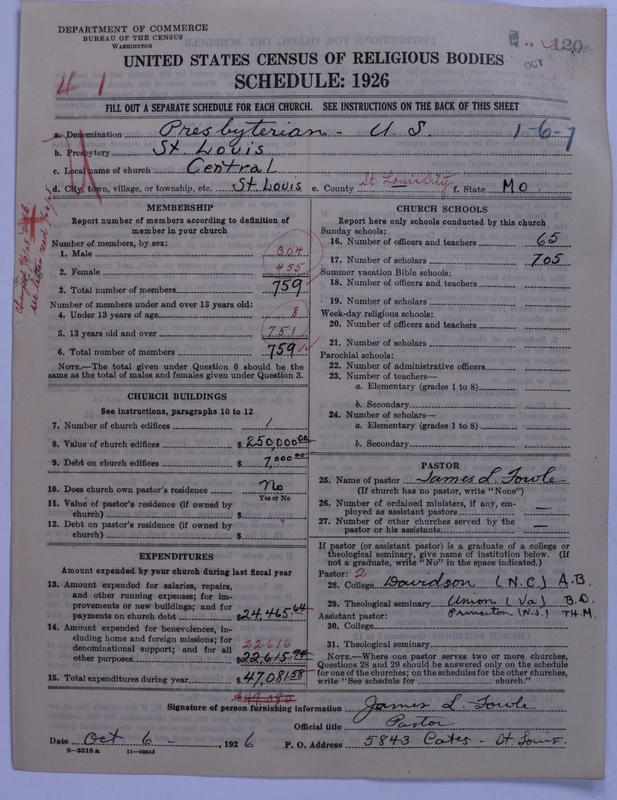 DEPARTMENT OF COMMERCE
BUREAU OF THE CENSUS
WASHINGTON
120
OCT
UNITED STATES CENSUS OF RELIGIOUS BODIES
SCHEDULE: 1926
4 1
FILL OUT A SEPARATE SCHEDULE FOR EACH CHURCH. SEE INSTRUCTIONS ON THE BACK OF THIS SHEET
a. Denomination Presbyterian - U. S. 1-6-7
b. Presbytery St Louis
c. Local name of church Central
d. City, town, village, or township, etc. St Louis e. County St. Louis City f. State Mo
MEMBERSHIP
Report number of members according to definition of
member in your church
Number of members, by sex:
1. Male 304
2. Female 455
3. Total number of members 759
Number of members under and over 13 years old:
4. Under 13 years of age 8
5. 13 years old and over 751
6. Total number of members 759
NOTE.—The total given under Question 6 should be
same as the total of males and females given under Question 3.
CHURCH BUILDINGS
See instructions, paragraphs 10 to 12
7. Number of church edifices 1
8. Value of church edifices $250,000.00
9. Debt on church edifices $7,000.00
10. Does church own pastor's residence No
Yes or No
11. Value of pastor's residence (if owned by
church) $
12. Debt on pastor's residence (if owned by
church) $
EXPENDITURES
Amount expended by your church during last fiscal year
13. Amount expended for salaries, repairs,
and other running expenses; for im-
provements or new buildings; and for
payments on church debt $24,465.64
14. Amount expended for benevolences, in-
cluding home and foreign missions; for
denominational support; and for all 22616
other purposes $22,615.94
15. Total expenditures during year $47,081.58
CHURCH SCHOOLS
Report here only schools conducted by this church
Sunday schools:
16. Number of officers and teachers 65
17. Number of scholars 705
Summer vacation Bible schools:
18. Number of officers and teachers
19. Number of scholars
Week-day religious schools:
20. Number of officers and teachers
21. Number of scholars
Parochial schools:
22. Number of administrative officers
23. Number of teachers—
a. Elementary (grades 1 to 8)
b. Secondary
24. Number of scholars—
a. Elementary (grades 1 to 8)
b. Secondary
PASTOR
25. Name of pastor James L Fowle
(If church has no pastor, write "None")
26. Number of ordained ministers, if any, em-
ployed as assistant pastors —
27. Number of other churches served by the
pastor or his assistants —
If pastor (or assistant pastor) is a graduate of a college or
theological seminary, give name of institution below. (If
not a graduate, write "No" in the space indicated.)
Pastor: 2
28. College Davidson (N.C.) A.B.
29. Theological seminary Union (Va) B.D.
Assistant pastor: Princeton (N.J.) TH.M.
30. College
31. Theological seminary
NOTE.—Where one pastor serves two or more churches,
Questions 28 and 29 should be answered only on the schedule
for one of the churches; on the schedules for the other churches,
write "See schedule for church."
Signature of person furnishing information James L. Fowle
Official title Pastor
Date Oct 6 -, 1926 P. O. Address 5843 Cates - St Louis.
8-5518 a